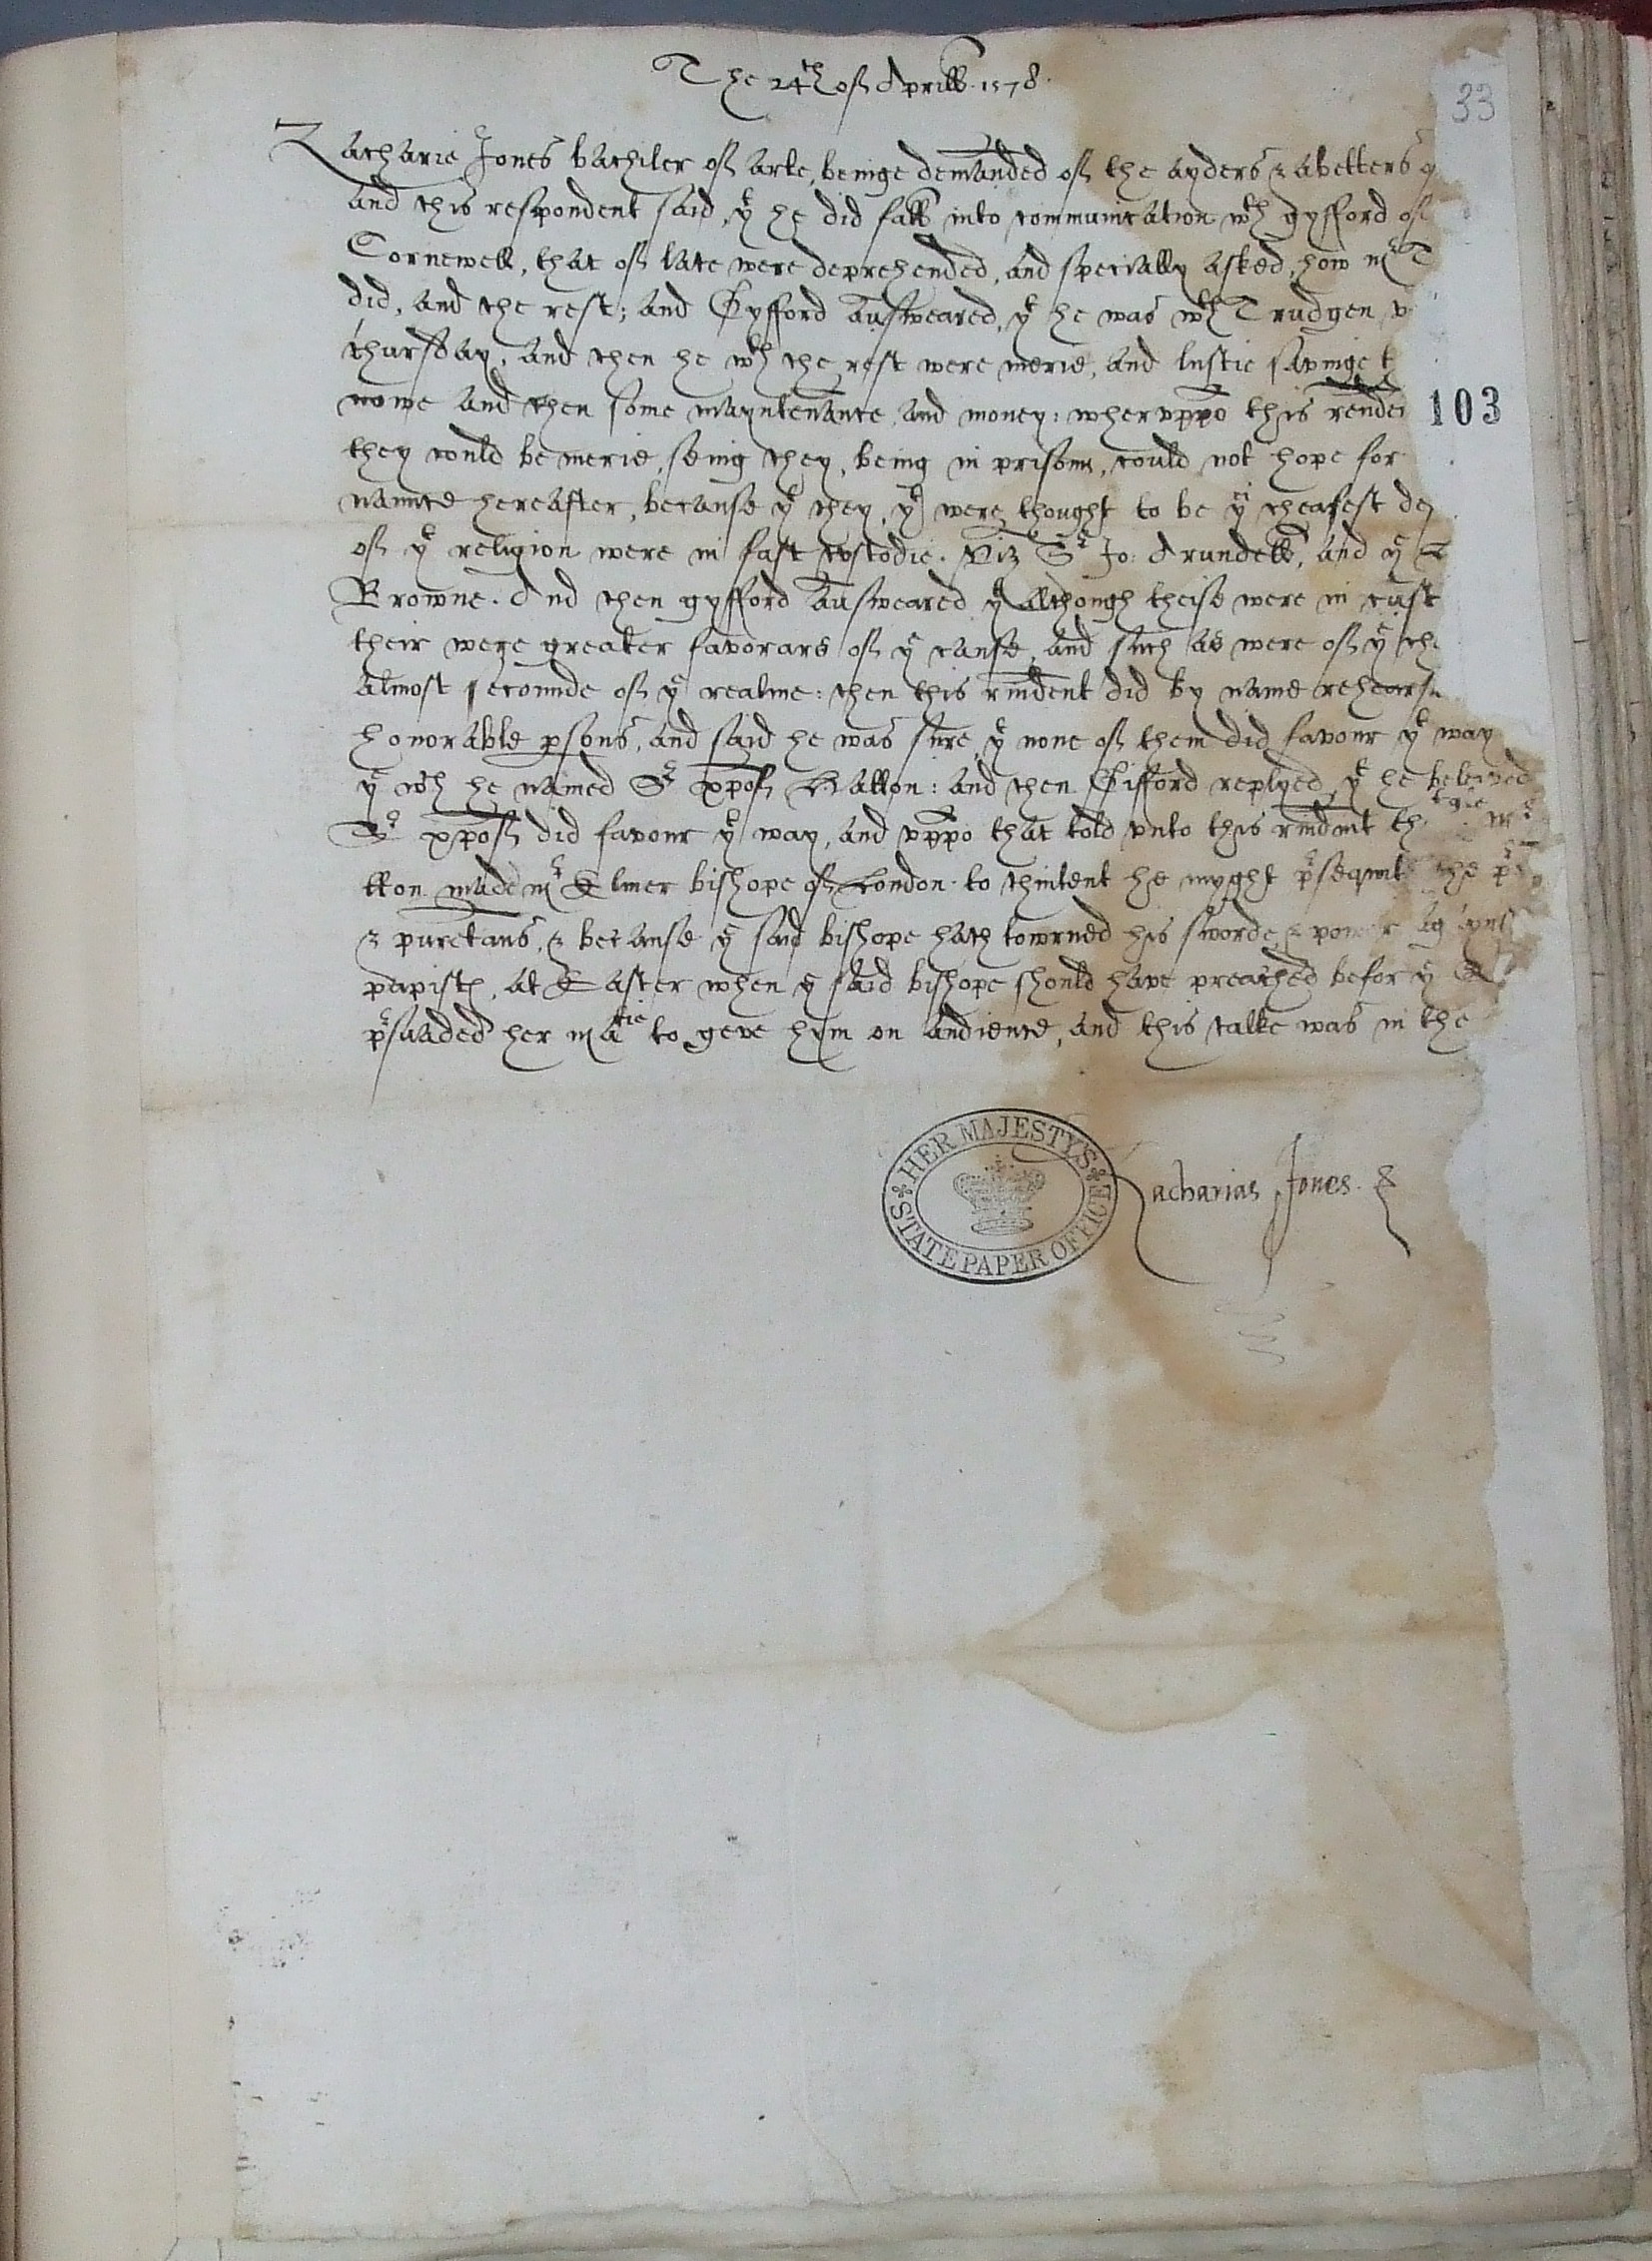 The 24th of Aprill 1578.
33
Zacharie Jones bachiler of arte, beinge demanded of the ayders & abetters
and this respondent said, yt he did fall into communication wth gyfford of
Cornewell, that of late were deprehended, and specially asked, how mr T
did, and the rest; and Gyfford answeared, yt he was wth Trudgen
thursday, and then he wth the rest were merie, and lustie savinge
nowe and then some mayntenance, and money: wheruppo this render
103
they could be merie, seing they, being in prisonn, could not hope for
nannce hereafter, because yt they, yt were thought to be ye cheafest
of yt religion were in fast custodie. Viz Sr Jo: Arundell, and ye
Browne. And then gyfford answeared yt although theise were in cust
their were greater favorars of ye cause, and such as were of ye
almost secounde of ye realme: then this rindent did by name rehearse
honorable psons, and said he was sure yt none of them did favour yt way
ye wch he named Sr xpof Hatton: and then Gifford replyed, yt he beleived
Sr xpof did favour yt way, and uppo that told unto this rindent
tton made mr Elmer bishope of London to thintent he myght psequute the
& puretans, & because ye said bishope hath towrned his sworde, & power agaynst
papistes, at Easter when ye said bishope should have preached befor ye
psuaded her matie to geve hym on audience, and this talke was in the
HER MAJESTY'S STATE PAPER OFFICE
Zacharias Jones.